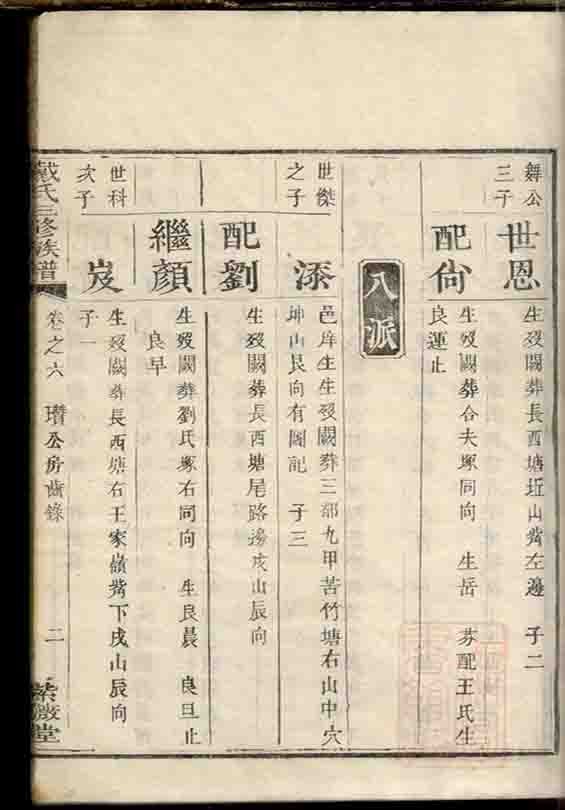 舞公
三子
世恩
生歿闕葬長西塘坵山觜左邊 子二
配尙
生歿闕葬合夫塚同向 生岳 芬配王氏生
良運止
八派
世傑
之子
添
邑庠生生歿闕葬三部九甲苦竹塘右山中穴
坤山艮向有圖記 子三
配劉
生歿闕葬長西塘尾路邊戌山辰向
繼顏
生歿闕葬劉氏塚右同向 生良晨 良旦止
良早
世科
次子
岌
生歿闕葬長西塘右王家嶺觜下戌山辰向
子一
戴氏三修族譜
卷之六 瓚公房齒錄 二
紫薇堂